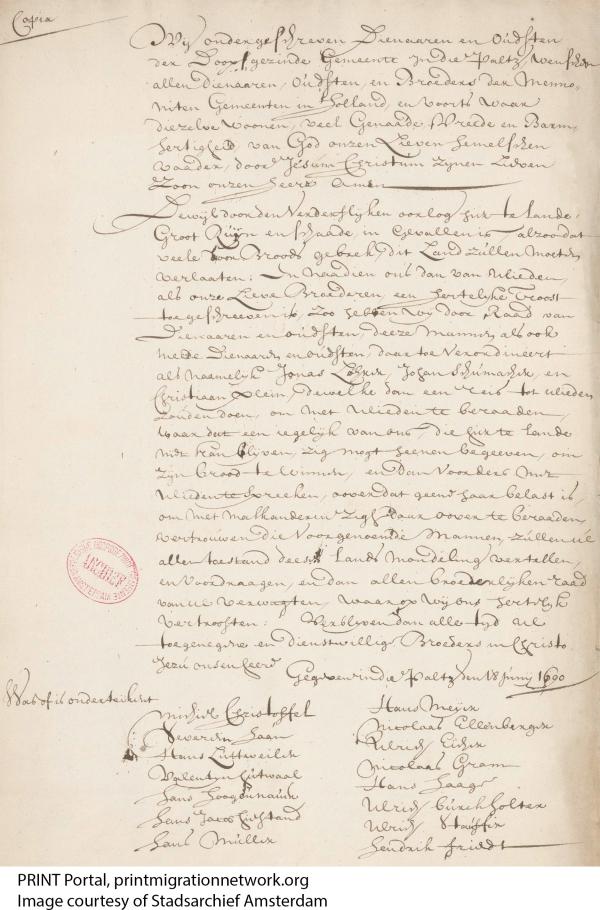 Copia
Wij ondergeschreven Dienaaren en Oudsten
der Doopsgezinde Gemeente in die Paltz, wenschen
allen Dienaaren, Oudsten, en Broeders der Menno-
niten Gemeenten in Holland, en voorts waar
diezelve woonen, veel Genaade, Vreede en Barm-
hertigheid, van God onzen Lieven hemelschen
vaader, door Jesum Christum zynen Lieven
Zoon onzen heere Amen
Dewijl door den Verderflyken oorlog hier te lande
Groot Ruijn en schaade, in gevallen is, alzoo dat
veele voor Broods gebrek, dit Land zullen moeten
verlaaten: En naadien ons dan van ulieden,
als onze Lieve Broederen, een hertelyke Troost
toegeschreeven is, Zoo hebben wy door Raad van
Dienaaren en oudsten, deeze Mannen, als ook
meede Dienaaren en oudsten, daar toe Verordineert
als naamelijk Jonas Johan Schumacher, en
Christiaan Plein, dewelke dan een reis tot ulieden
zouden doen, om met ulieden te beraaden,
waar dat een iegelijk van ons, die hier te lande
niet kan blyven, zig mogt heenen begeeven, om
zijn brood te winnen, en dan voorders met
ulieden te spreeken, oover dat geene haar belast is,
om met malkanderen zigh daar oover te beraaden,
vertrouwen die voorgenoemde Mannen, zullen ul
allen toestand deeses Lands mondeling vertellen,
en voordraagen, en dan allen broederlyken raad
van ul verwagten, waar op wij ons hertelyk
vertroosten: Verblyven dan alle tyd ul
toegenegene en dienstwillige Broeders in Christo
Jezu onsen heere
Gegeven in die Paltz den 18 Juny 1690
Was of is onderteikent
Michiel Christoffel
Haan
Hans
Valentyn hutwaal
hans
hans Jacob
hans Müller
Hans Meijer
Nicolaas Ellenberger
Ulrich
Nicolaas Gram
Hans Haage
Ulrich Burckholter
Ulrich Stauffer
hendrik friedt
ARCHIEF
PRINT Portal, printmigrationnetwork.org
Image courtesy of Stadsarchief Amsterdam